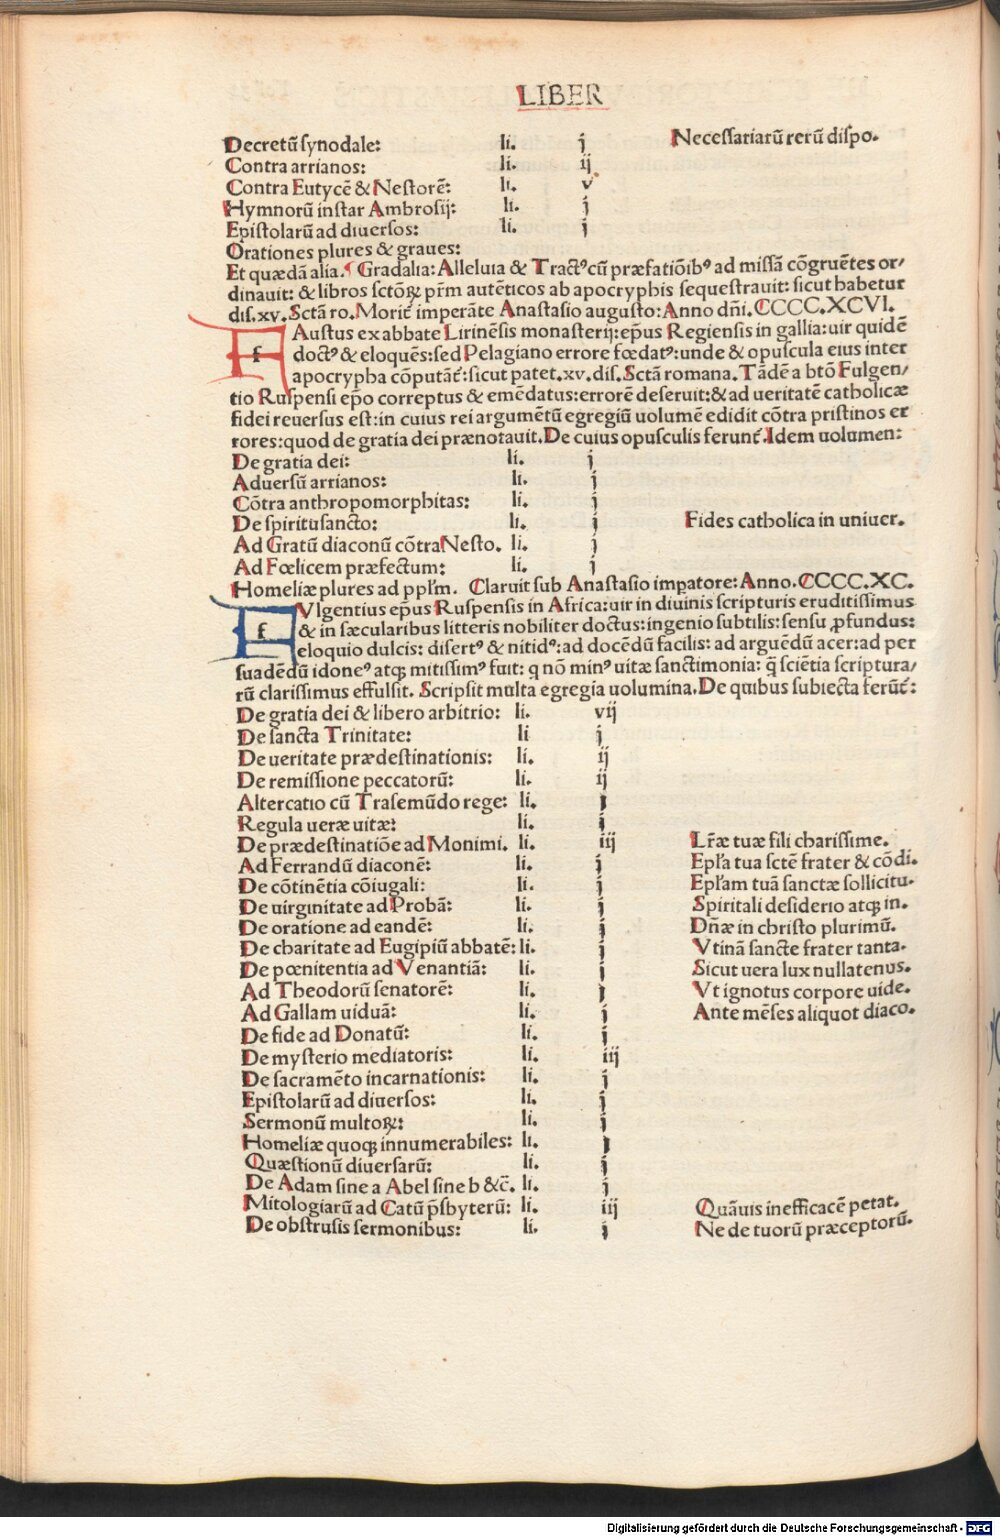 LIBER
Decretū synodale: li. j Necessariarū rerū dispo.
Contra arrianos: li. ij
Contra Eutycē & Nestorē: li. v
Hymnorū instar Ambrosij: li. j
Epistolarū ad diuersos: li. j
Orationes plures & graues:
Et quædā alia. Gradalia: Alleluia & Tractꝰ cū præfatiōibꝰ ad missā cōgruētes or/
dinauit: & libros sctōꝝ pr̄m autēticos ab apocryphis sequestrauit: sicut habetur
dis. xv. Sctā ro. Morit̄ imperāte Anastasio augusto: Anno dn̄i. CCCC.XCVI.
fAustus ex abbate Lirinēsis monasterij: ep̄us Regiensis in gallia: uir quidē
doctꝰ & eloquēs: sed Pelagiano errore fœdatꝰ: unde & opuscula eius inter
apocrypha cōputāt̄: sicut patet. xv. dis. Sctā romana. Tādē a btō Fulgen/
tio Ruspensi ep̄o correptus & emēdatus: errorē deseruit: & ad ueritatē catholicæ
fidei reuersus est: in cuius rei argumētū egregiū uolumē edidit cōtra pristinos er
rores: quod de gratia dei prænotauit. De cuius opusculis ferunt̄. Idem uolumen:
De gratia dei: li. j
Aduersū arrianos: li. j
Cōtra anthropomorphitas: li. j
De spiritusancto: li. j Fides catholica in uniuer.
Ad Gratū diaconū cōtra Nesto. li. j
Ad Fœlicem præfectum: li. j
Homeliæ plures ad ppl̄m. Claruit sub Anastasio imꝑatore: Anno. CCCC.XC.
fVlgentius ep̄us Ruspensis in Africa: uir in diuinis scripturis eruditissimus
& in sæcularibus litteris nobiliter doctus: ingenio subtilis: sensu ꝓfundus:
eloquio dulcis: disertꝰ & nitidꝰ: ad docēdū facilis: ad arguēdū acer: ad per
suadēdū idoneꝰ atqꝫ mitissimꝰ fuit: q nō minꝰ uitæ sanctimonia: q̄ sciētia scriptura/
rū clarissimus effulsit. Scripsit multa egregia uolumina. De quibus subiecta ferūt̄:
De gratia dei & libero arbitrio: li. vij
De sancta Trinitate: li j
De ueritate prædestinationis: li. ij
De remissione peccatorū: li. ij
Altercatio cū Trasemūdo rege: li. j
Regula ueræ uitæ: li. j
De prædestinatiōe ad Monimi. li. iij Lr̄æ tuæ fili charissime.
Ad Ferrandū diaconē: li. j Epl̄a tua sctē frater & cōdi.
De cōtinētia cōiugali: li. j Epl̄am tuā sanctæ sollicitu.
De uirginitate ad Probā: li. j Spiritali desiderio atqꝫ in.
De oratione ad eandē: li. j Dn̄æ in christo plurimū.
De charitate ad Eugipiū abbatē: li. j Vtinā sancte frater tanta.
De pœnitentia ad Venantiā: li. j Sicut uera lux nullatenus.
Ad Theodorū senatorē: li. j Vt ignotus corpore uide.
Ad Gallam uiduā: li. j Ante mēses aliquot diaco.
De fide ad Donatū: li. j
De mysterio mediatoris: li. iij
De sacramēto incarnationis: li. j
Epistolarū ad diuersos: li. j
Sermonū multoꝝ: li. j
Homeliæ quoqꝫ innumerabiles: li. j
Quæstionū diuersarū: li. j
De Adam sine a Abel sine b &c̄. li. j
Mitologiarū ad Catū p̄sbyterū: li. iij Quāuis inefficacē petat.
De obstrusis sermonibus: li. j Ne de tuorū præceptorū.
Digitalisierung gefördert durch die Deutsche Forschungsgemeinschaft - DFG